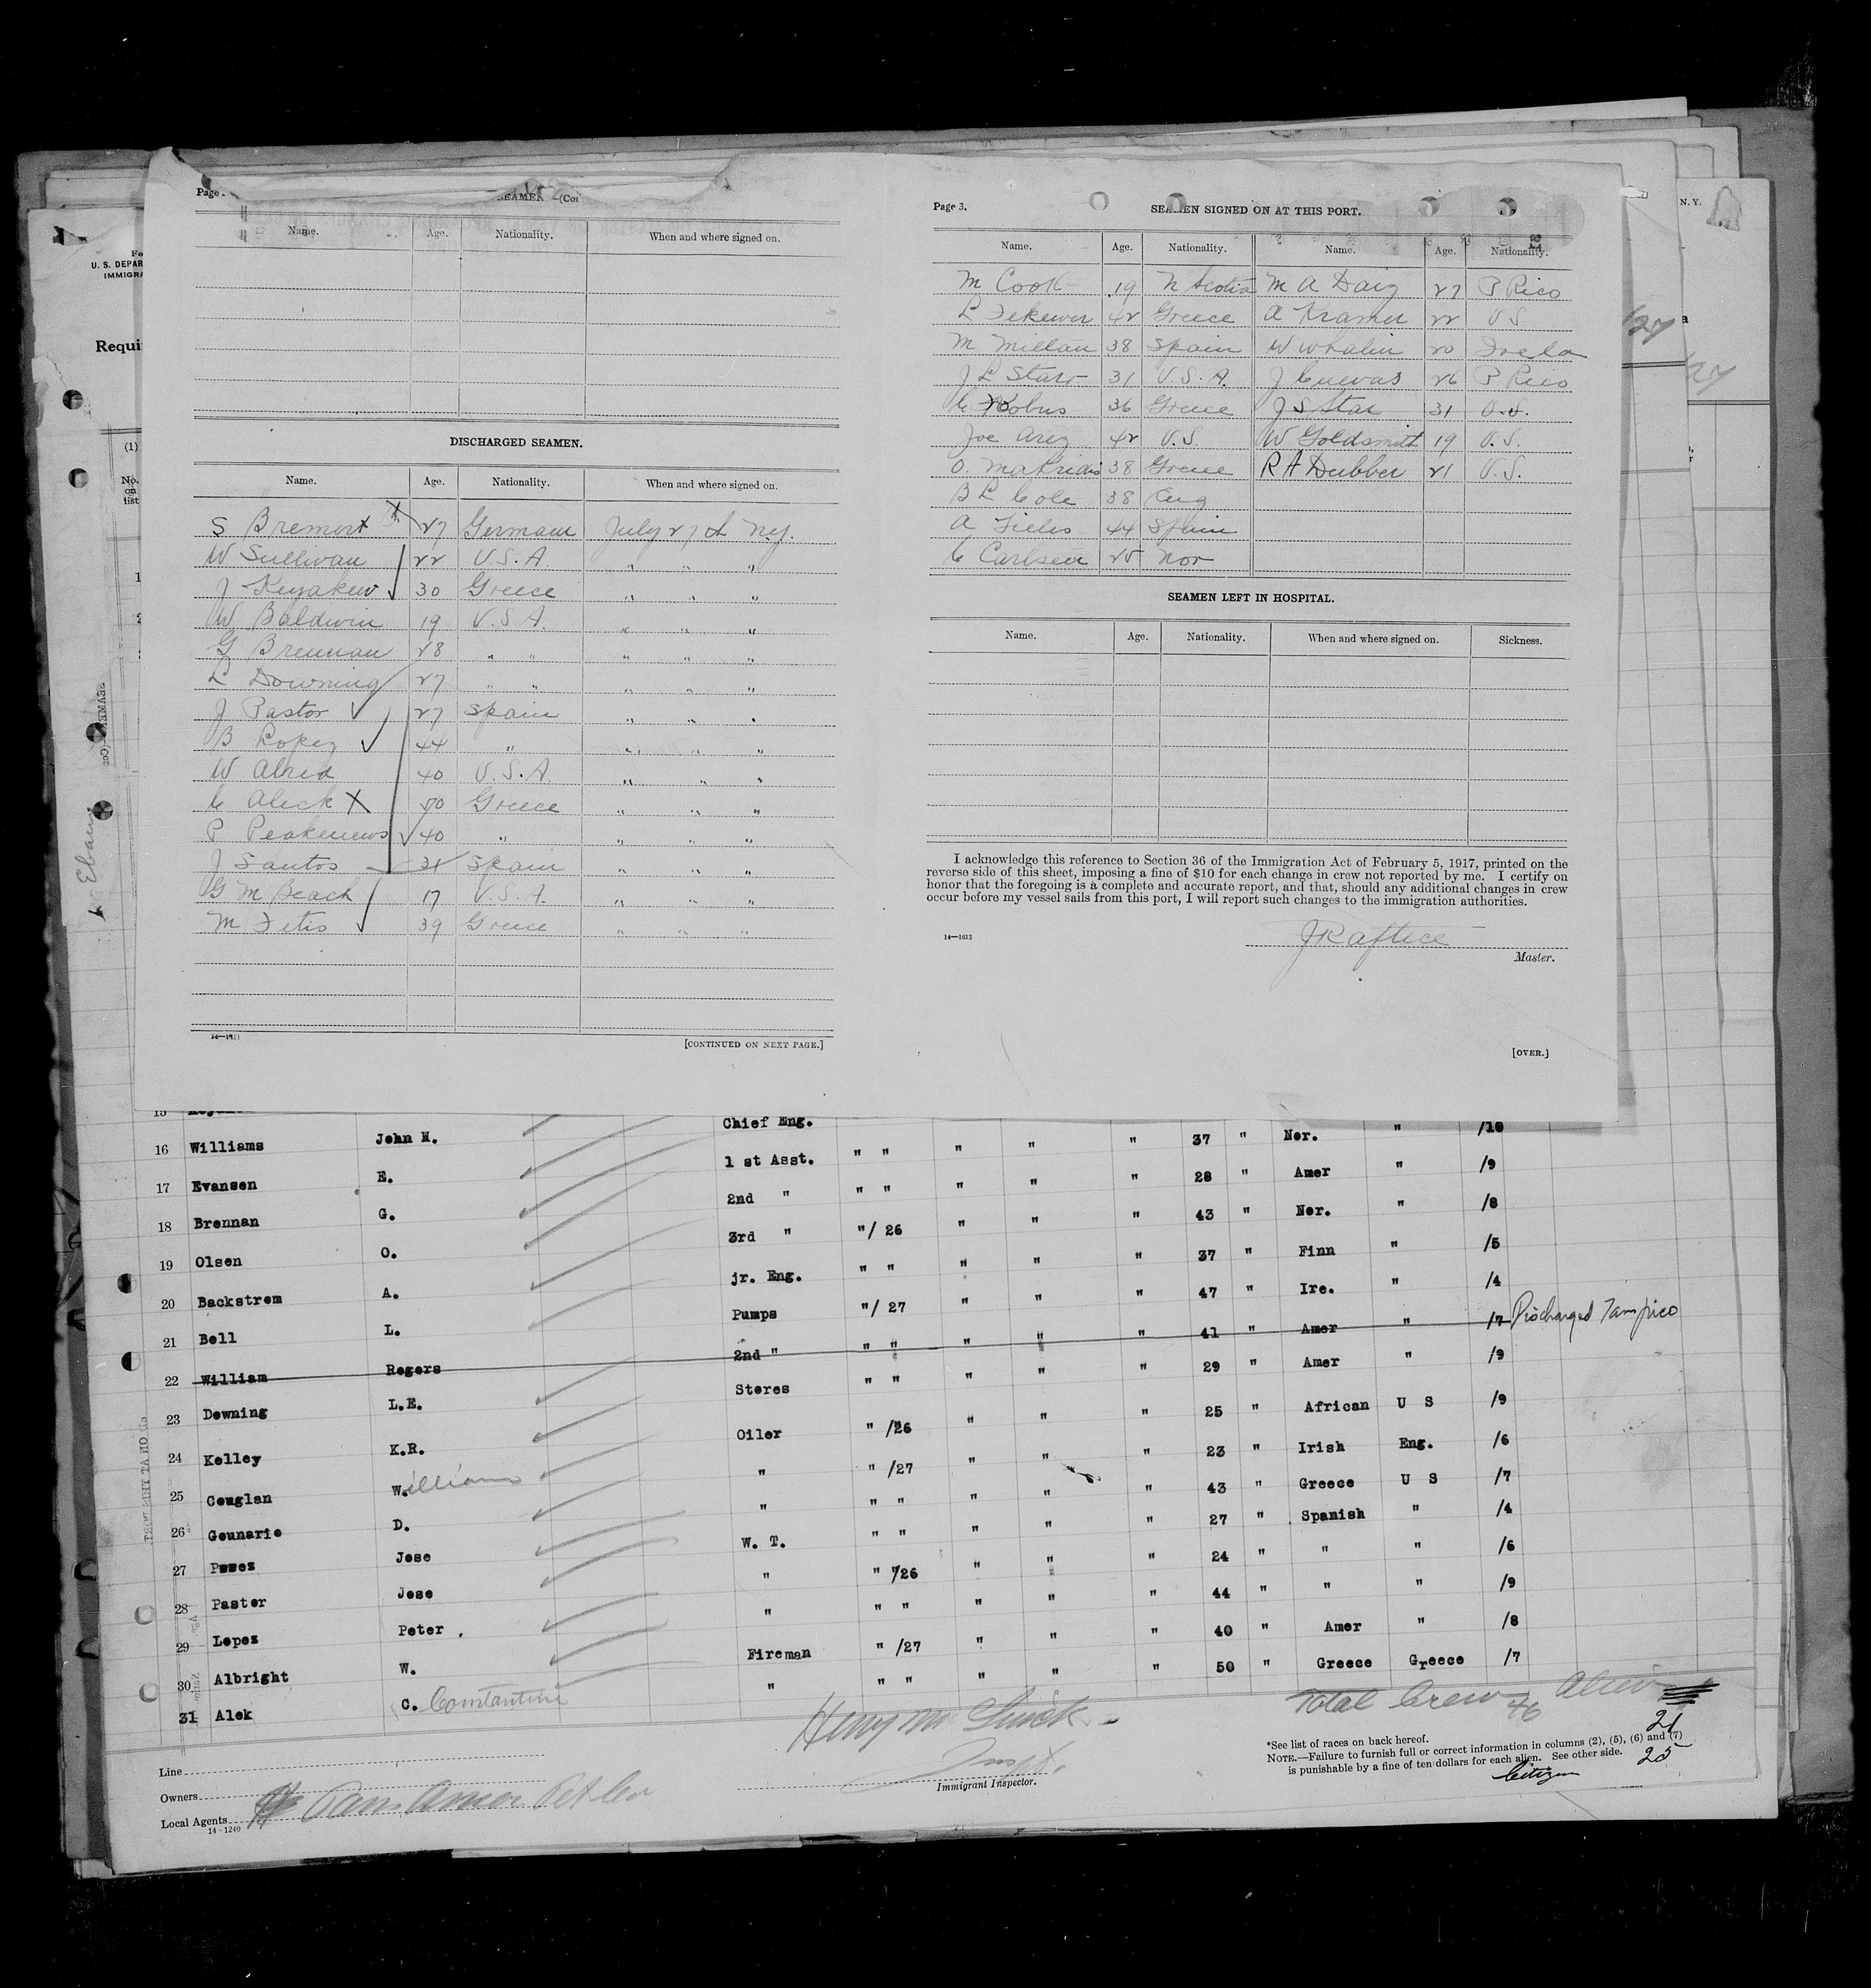 Page
SEAMEN —(Co
Name. Age. Nationality. When and where signed on.
DISCHARGED SEAMEN.
Name. Age. Nationality. When and where signed on.
S Bremort X 27 Germani July 27th N.Y.
W Sullivan 22 U.S.A. " " "
J 30 Greece " " "
W Baldwin 19 U.S.A. " " "
G Brennan 28 " " " " "
L Downing 27 " " " " "
J Pastor 27 Spain " " "
B Lopez 44 " " " "
W Alred 40 U.S.A. " " "
C Aleck X 50 Greece " " "
P 40 " " " "
J Santos 31 Spain " " "
G M Beach 17 U.S.A. " " "
M Fetis 39 Greece " " "
14—1611
[CONTINUED ON NEXT PAGE.]
Page 3.
SEAMEN SIGNED ON AT THIS PORT.
Name. Age. Nationality. Name. Age. Nationality.
M Cook 19 N Scotia M A Daiz 27 P Rico
L 42 Greece A Kramer 22 U S
M Millan 38 Spain W Whalin 20 Irela
J L Starr 31 U.S.A. J Cuevas 26 P Rico
C 36 Greece J S Star 31 U.S.
Joe Arez 42 U.S. W Goldsmith 19 U.S.
O. Makriais 38 Greece R A Dubber 21 U.S.
B L Cole 38 Eng
A Fieles 44 Spain
C Carlsen 25 Nor
SEAMEN LEFT IN HOSPITAL.
Name. Age. Nationality. When and where signed on. Sickness.
I acknowledge this reference to Section 36 of the Immigration Act of February 5, 1917, printed on the
reverse side of this sheet, imposing a fine of $10 for each change in crew not reported by me. I certify on
honor that the foregoing is a complete and accurate report, and that, should any additional changes in crew
occur before my vessel sails from this port, I will report such changes to the immigration authorities.
14—1613
Master.
[OVER.]
N. Y.
U. S. DEPAR
IMMIGRA
Requi
(1)
No.
on
list
15 Chief Eng.
16 Williams John H. 1 st Asst. " " " " " 37 " Nor. " /10
17 Evansen E. 2nd " " " " " " 28 " Amer " /9
18 Brennan G. 3rd " "/ 26 " " " 43 " Nor. " /8
19 Olsen O. jr. Eng. " " " " " 37 " Finn " /5
20 Backstrom A. Pumps "/ 27 " " " 47 " Ire. " /4
21 Bell L. 2nd " " " " " " 41 " Amer " /7 Discharged Tampico
22 William Rogers Stores " " " " " 29 " Amer " /9
23 Downing L.E. Oiler " /26 " " " 25 " African U S /9
24 Kelley K.R. " " /27 " " " 23 " Irish Eng. /6
25 Coughlan William " " " " " " 43 " Greece U S /7
26 Gounaris D. W. T. " " " " " 27 " Spanish " /4
27 Jose " " /26 " " " 24 " " " /6
28 Pastor Jose " " " " " " 44 " " " /9
29 Lopez Peter . Fireman " /27 " " " 40 " Amer " /8
30 Albright W. " " " " " " 50 " Greece Greece /7
31 Alek C. Constantine
Total Crew 46 Alien
21
25
Citizen
Line
Owners
Local Agents
14-1240
Immigrant Inspector.
*See list of races on back hereof.
NOTE.—Failure to furnish full or correct information in columns (2), (5), (6) and (7)
is punishable by a fine of ten dollars for each alien. See other side.